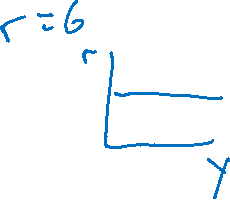 r = 6
r
Y